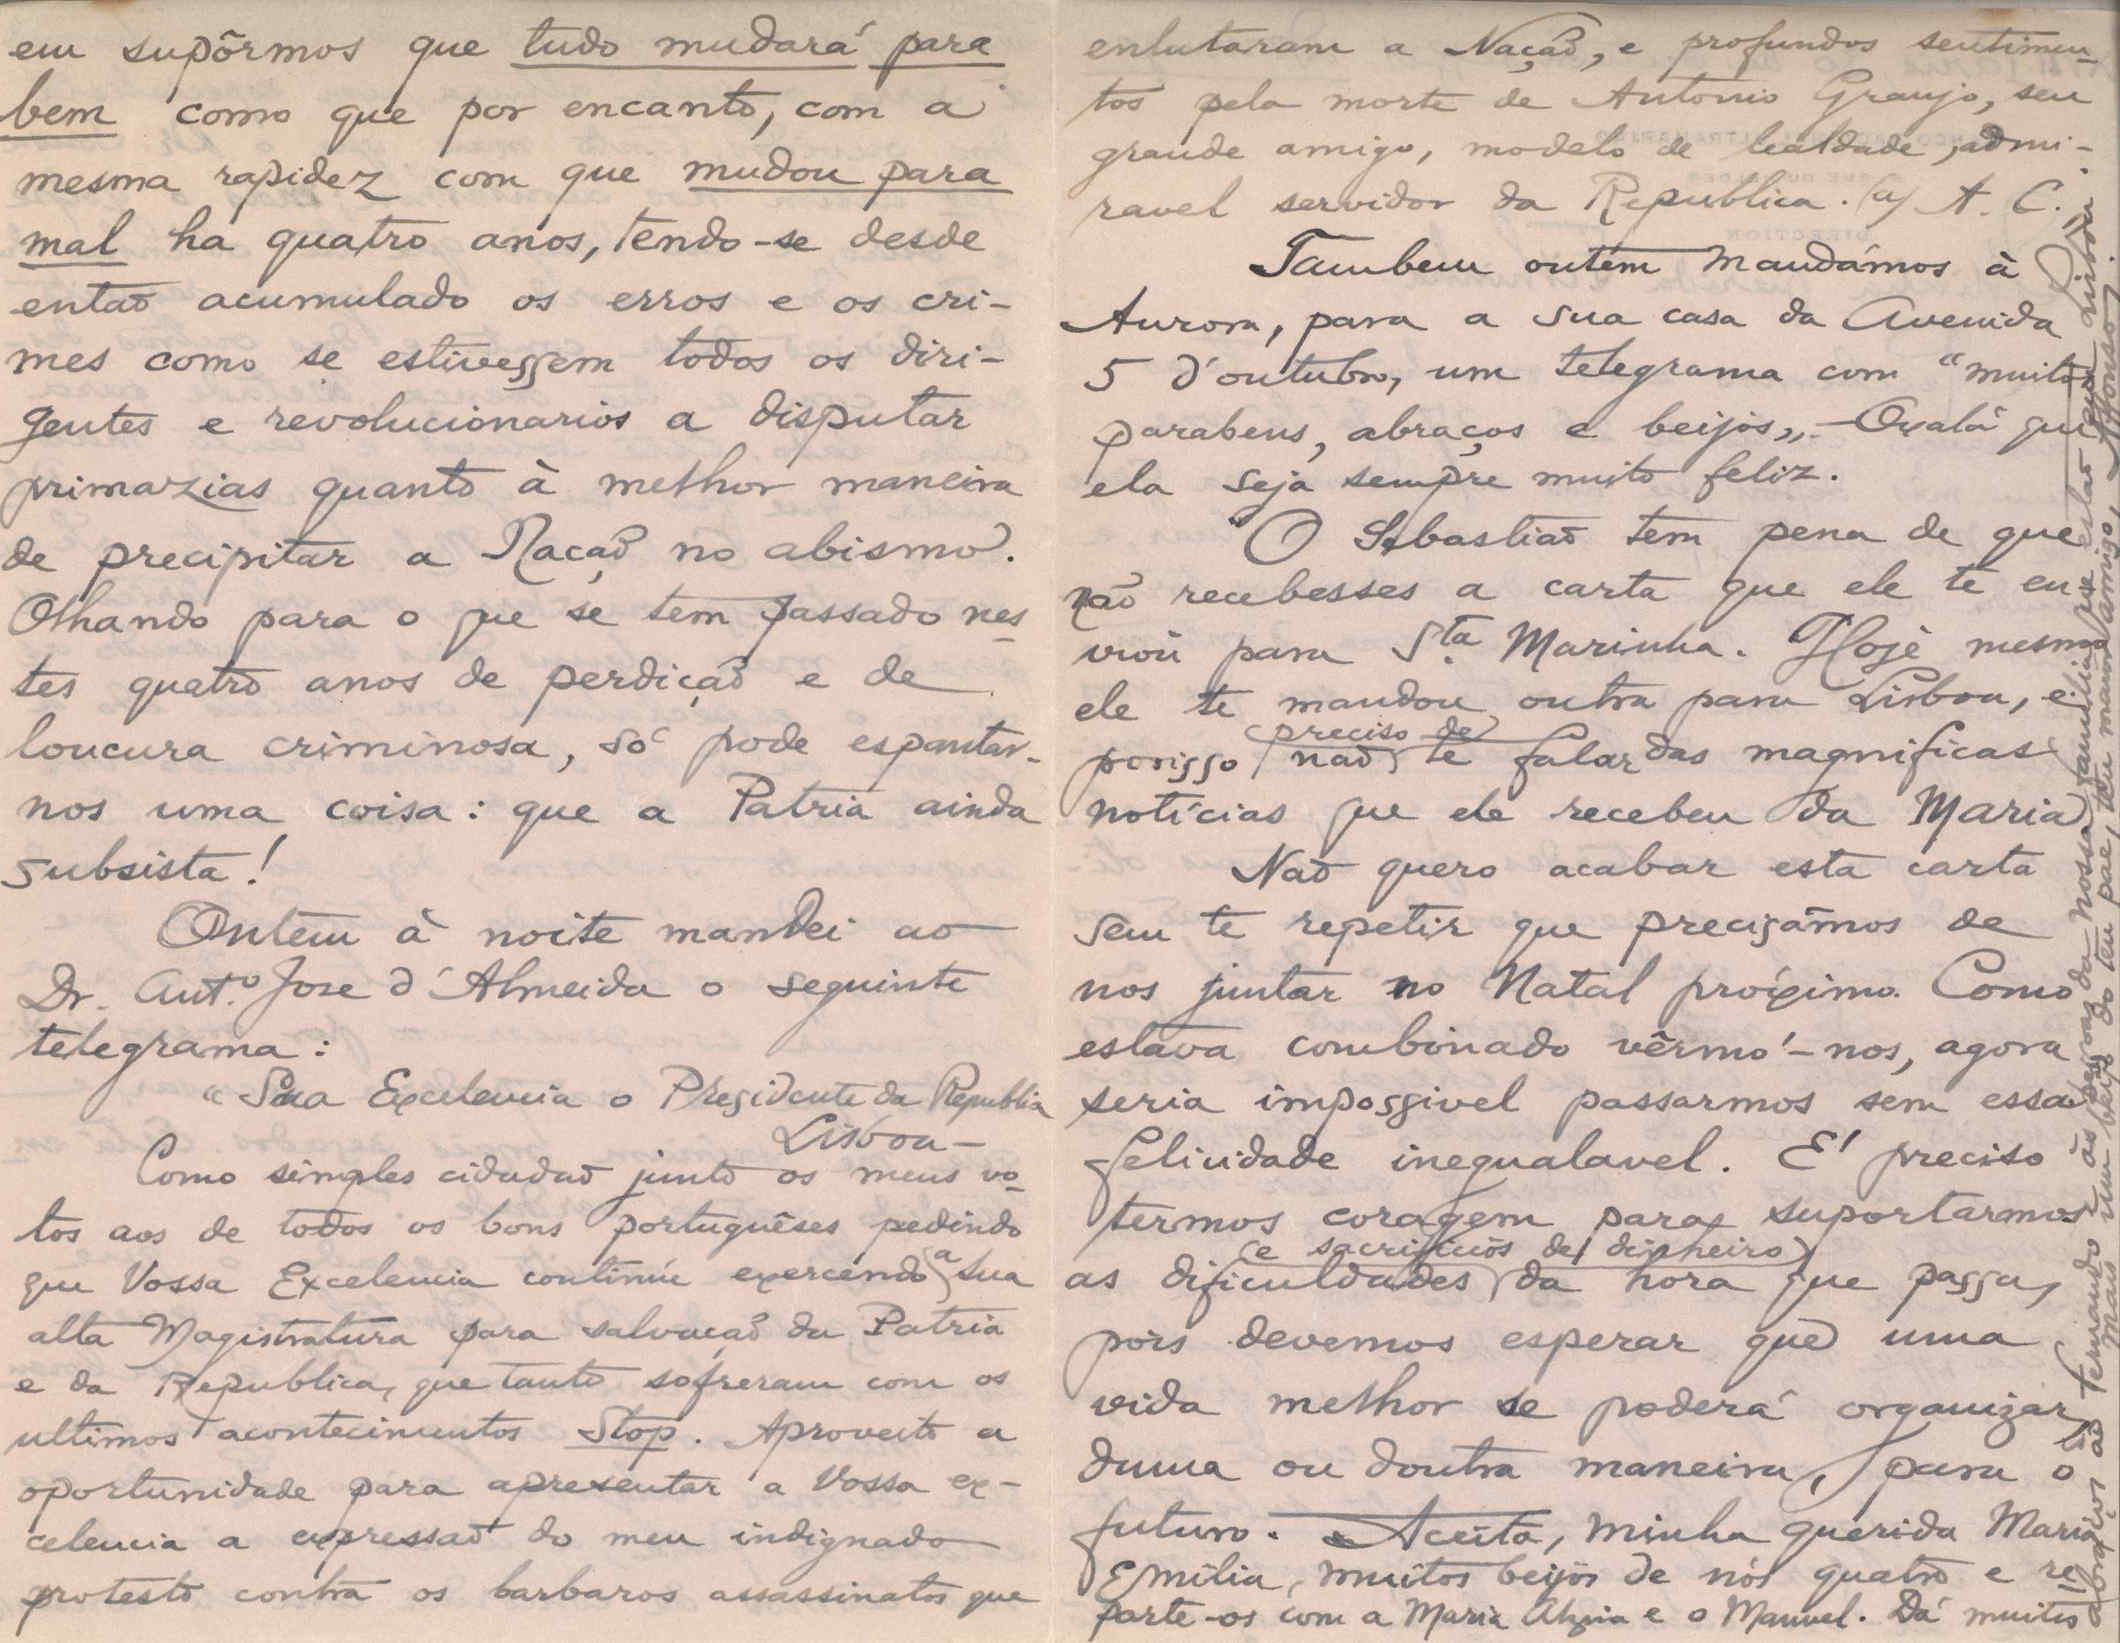 em supôrmos que tudo mudará para
bem como que por encanto, com a
mesma rapidez com que mudou para
mal ha quatro anos, tendo-se desde
entaõ acumulado os erros e os cri-
mes como se estivessem todos os diri-
gentes e revolucionarios a disputar
primazias quanto à melhor maneira
de precipitar a Naçaõ no abismo.
Olhando para o que se tem passado nes-
tes quatro anos de perdiçaõ e de
loucura criminosa, só pode espantar-
nos uma coisa: que a Patria ainda
subsista!
Ontem à noite mandei ao
Dr. Ant.º Jose d'Almeida o seguinte
telegrama:
"Sua Excelencia o Presidente da Republica
Lisboa—
Como simples cidadaõ junto os meus vo-
tos aos de todos os bons portuguêses pedindo
que Vossa Excelencia continúe exercendo a sua
alta Magistratura para salvaçaõ da Patria
e da Republica, que tanto sofreram com os
ultimos acontecimentos Stop. Aproveito a
oportunidade para apresentar a Vossa ex-
celencia a expressaõ do meu indignado
protesto contra os barbaros assassinatos que
enlutaram a Naçaõ, e profundos sentimen-
tos pela morte de Antonio Granjo, seu
grande amigo, modelo de lealdade, admi-
ravel servidor da Republica. (a) A. C.
Tambem ontem mandámos à
Aurora, para a sua casa da Avenida
5 d'outubro, um telegrama com "muitos
parabens, abraços e beijos„ — Oxalá que
ela seja sempre muito feliz.
O Sebastiaõ tem pena de que
naõ recebesses a carta que ele te en-
viou para Sta. Marinha. Hoje mesmo
ele te mandou outra para Lisboa, e
porisso naõ preciso de te falar das magnificas
notícias que ele recebeu da Maria
Naõ quero acabar esta carta
sem te repetir que precisâmos de
nos juntar no Natal próximo. Como
estava combinado vêrmo'-nos, agora
seria impossivel passarmos sem essa
felicidade inegualavel. E' preciso
termos coragem para suportarmos
as dificuldades e sacrificios de dinheiro da hora que passa,
pois devemos esperar que uma
vida melhor se poderá organizar,
duma ou doutra maneira, para o
futuro. Aceita, minha querida Maria
Emília, muitos beijos de nós quatro e re-
parte-os com a Maria Alzira e o Manuel. Dá muitos
abraços ao Fernando e às pessoas da nossa familia que estaõ em Lisboa.
Mais um beijo do teu pae, teu maman amigo, Afonso.